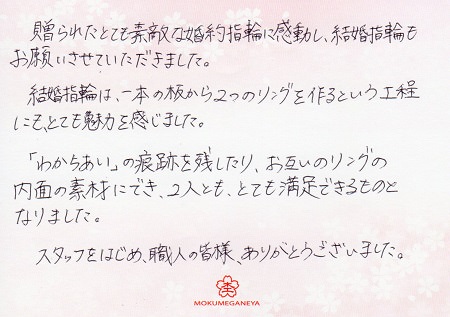 贈られたとても素敵な婚約指輪に感動し、結婚指輪も
お願いさせていただきました。
結婚指輪は、一本の板から2つのリングを作るという工程
にも、とても魅力を感じました。
「わからあい」の痕跡を残したり、お互いのリングの
内面の素材にでき、2人とも、とても満足できるものと
なりました。
スタッフをはじめ、職人の皆様、ありがとうございました。
MOKUMEGANEYA